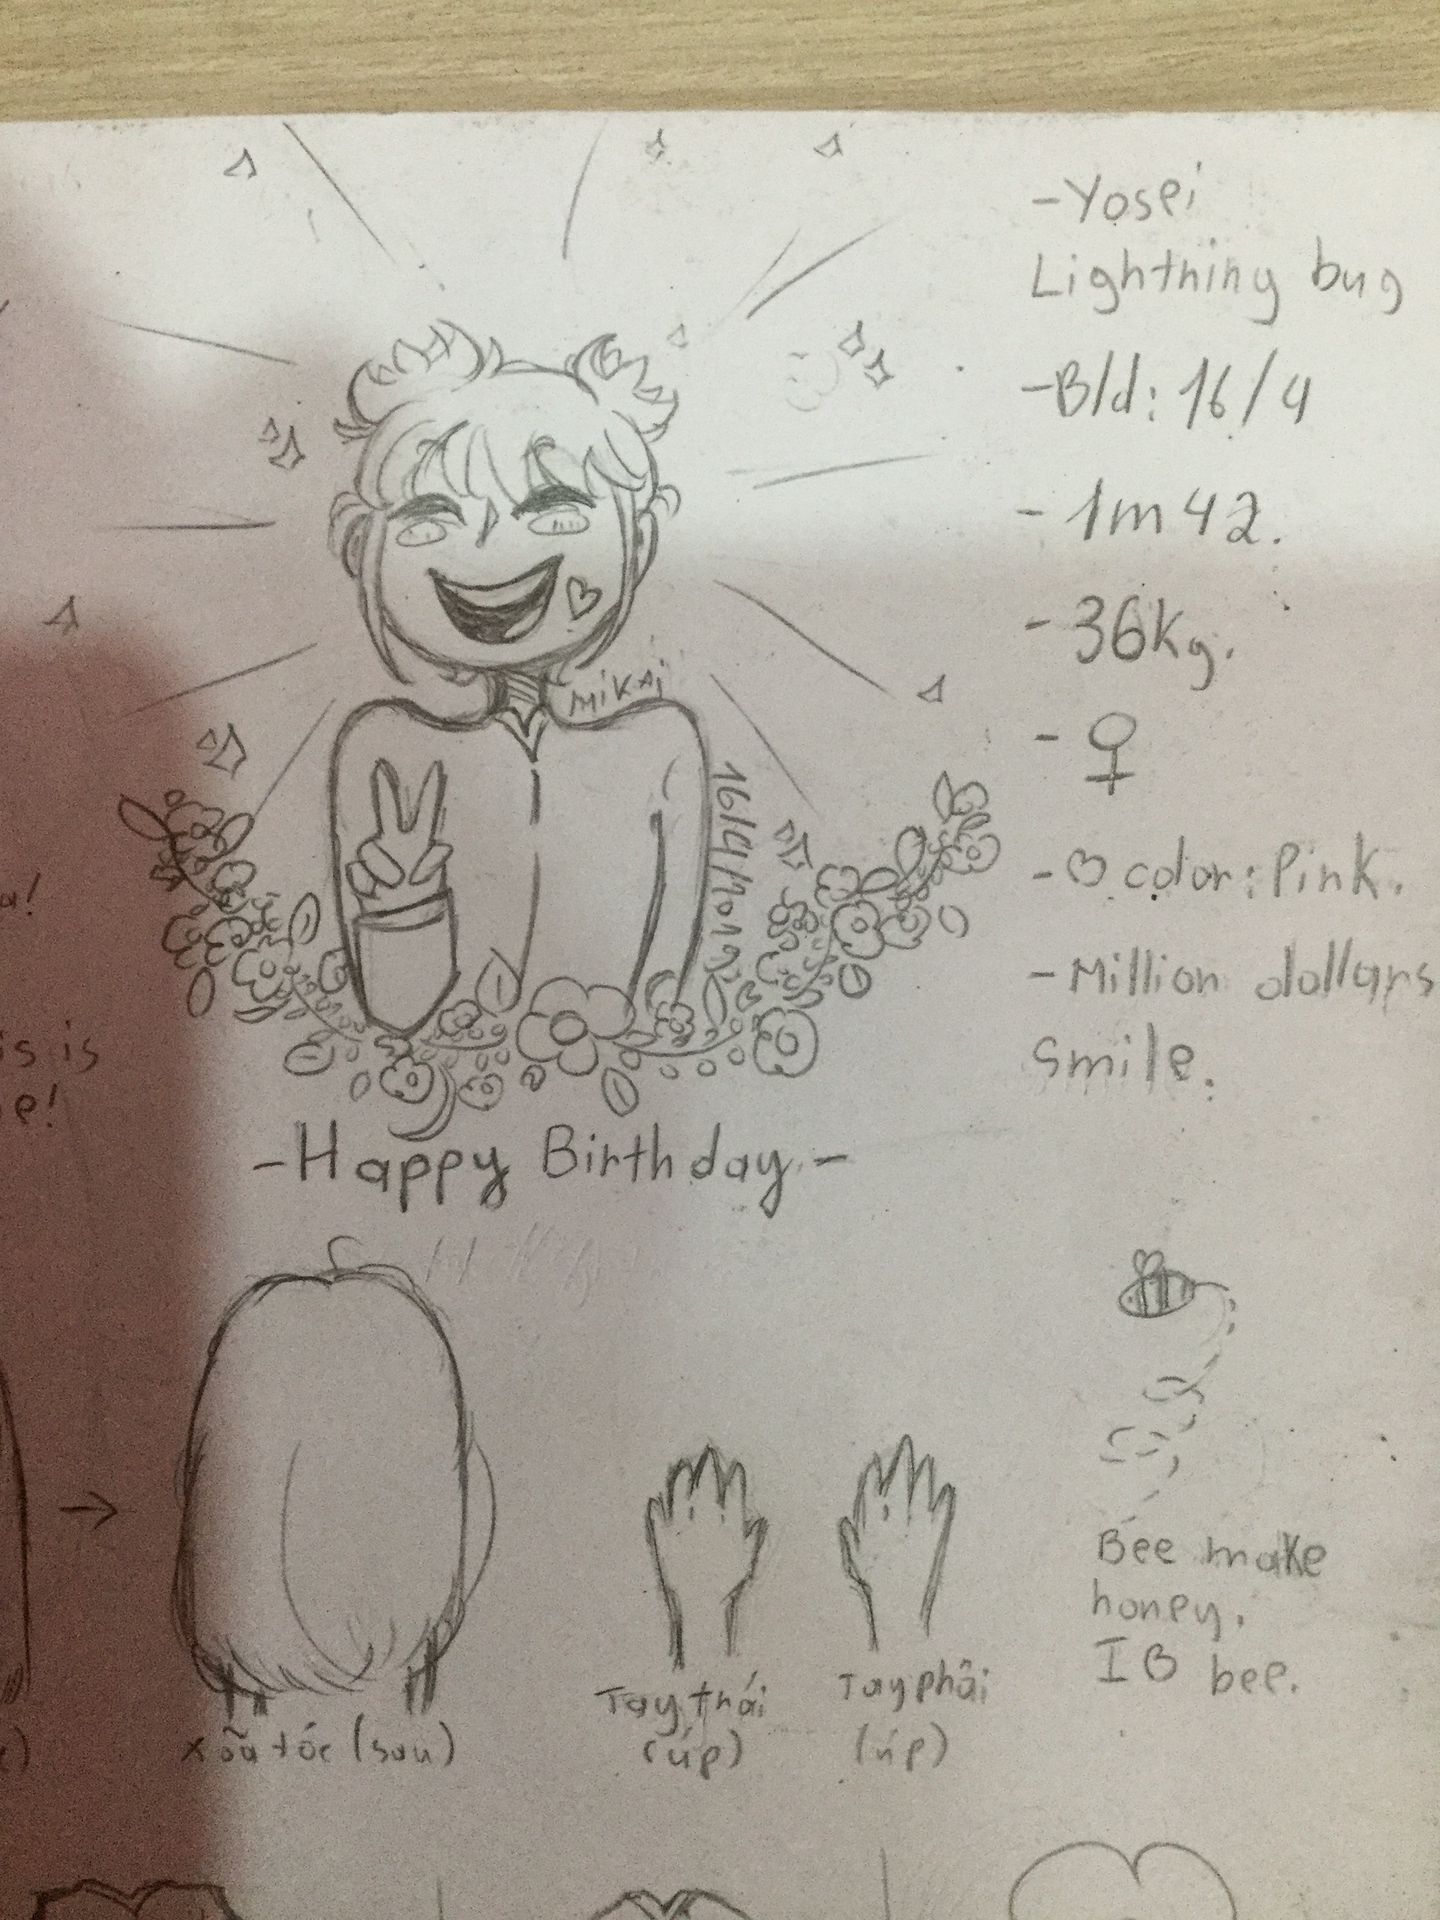 - Yosei
Lightning bug
- B/d: 16/4
- 1m42.
- 36kg.
- ♀
- ♡ color: Pink.
- Million dollars
smile.
MiKAi
16/4/2019
a!
is is
e!
- Happy Birthday. -
Bee make
honey.
I B bee.
xõa tóc (sau)
Tay trái
(úp)
Tay phải
(úp)